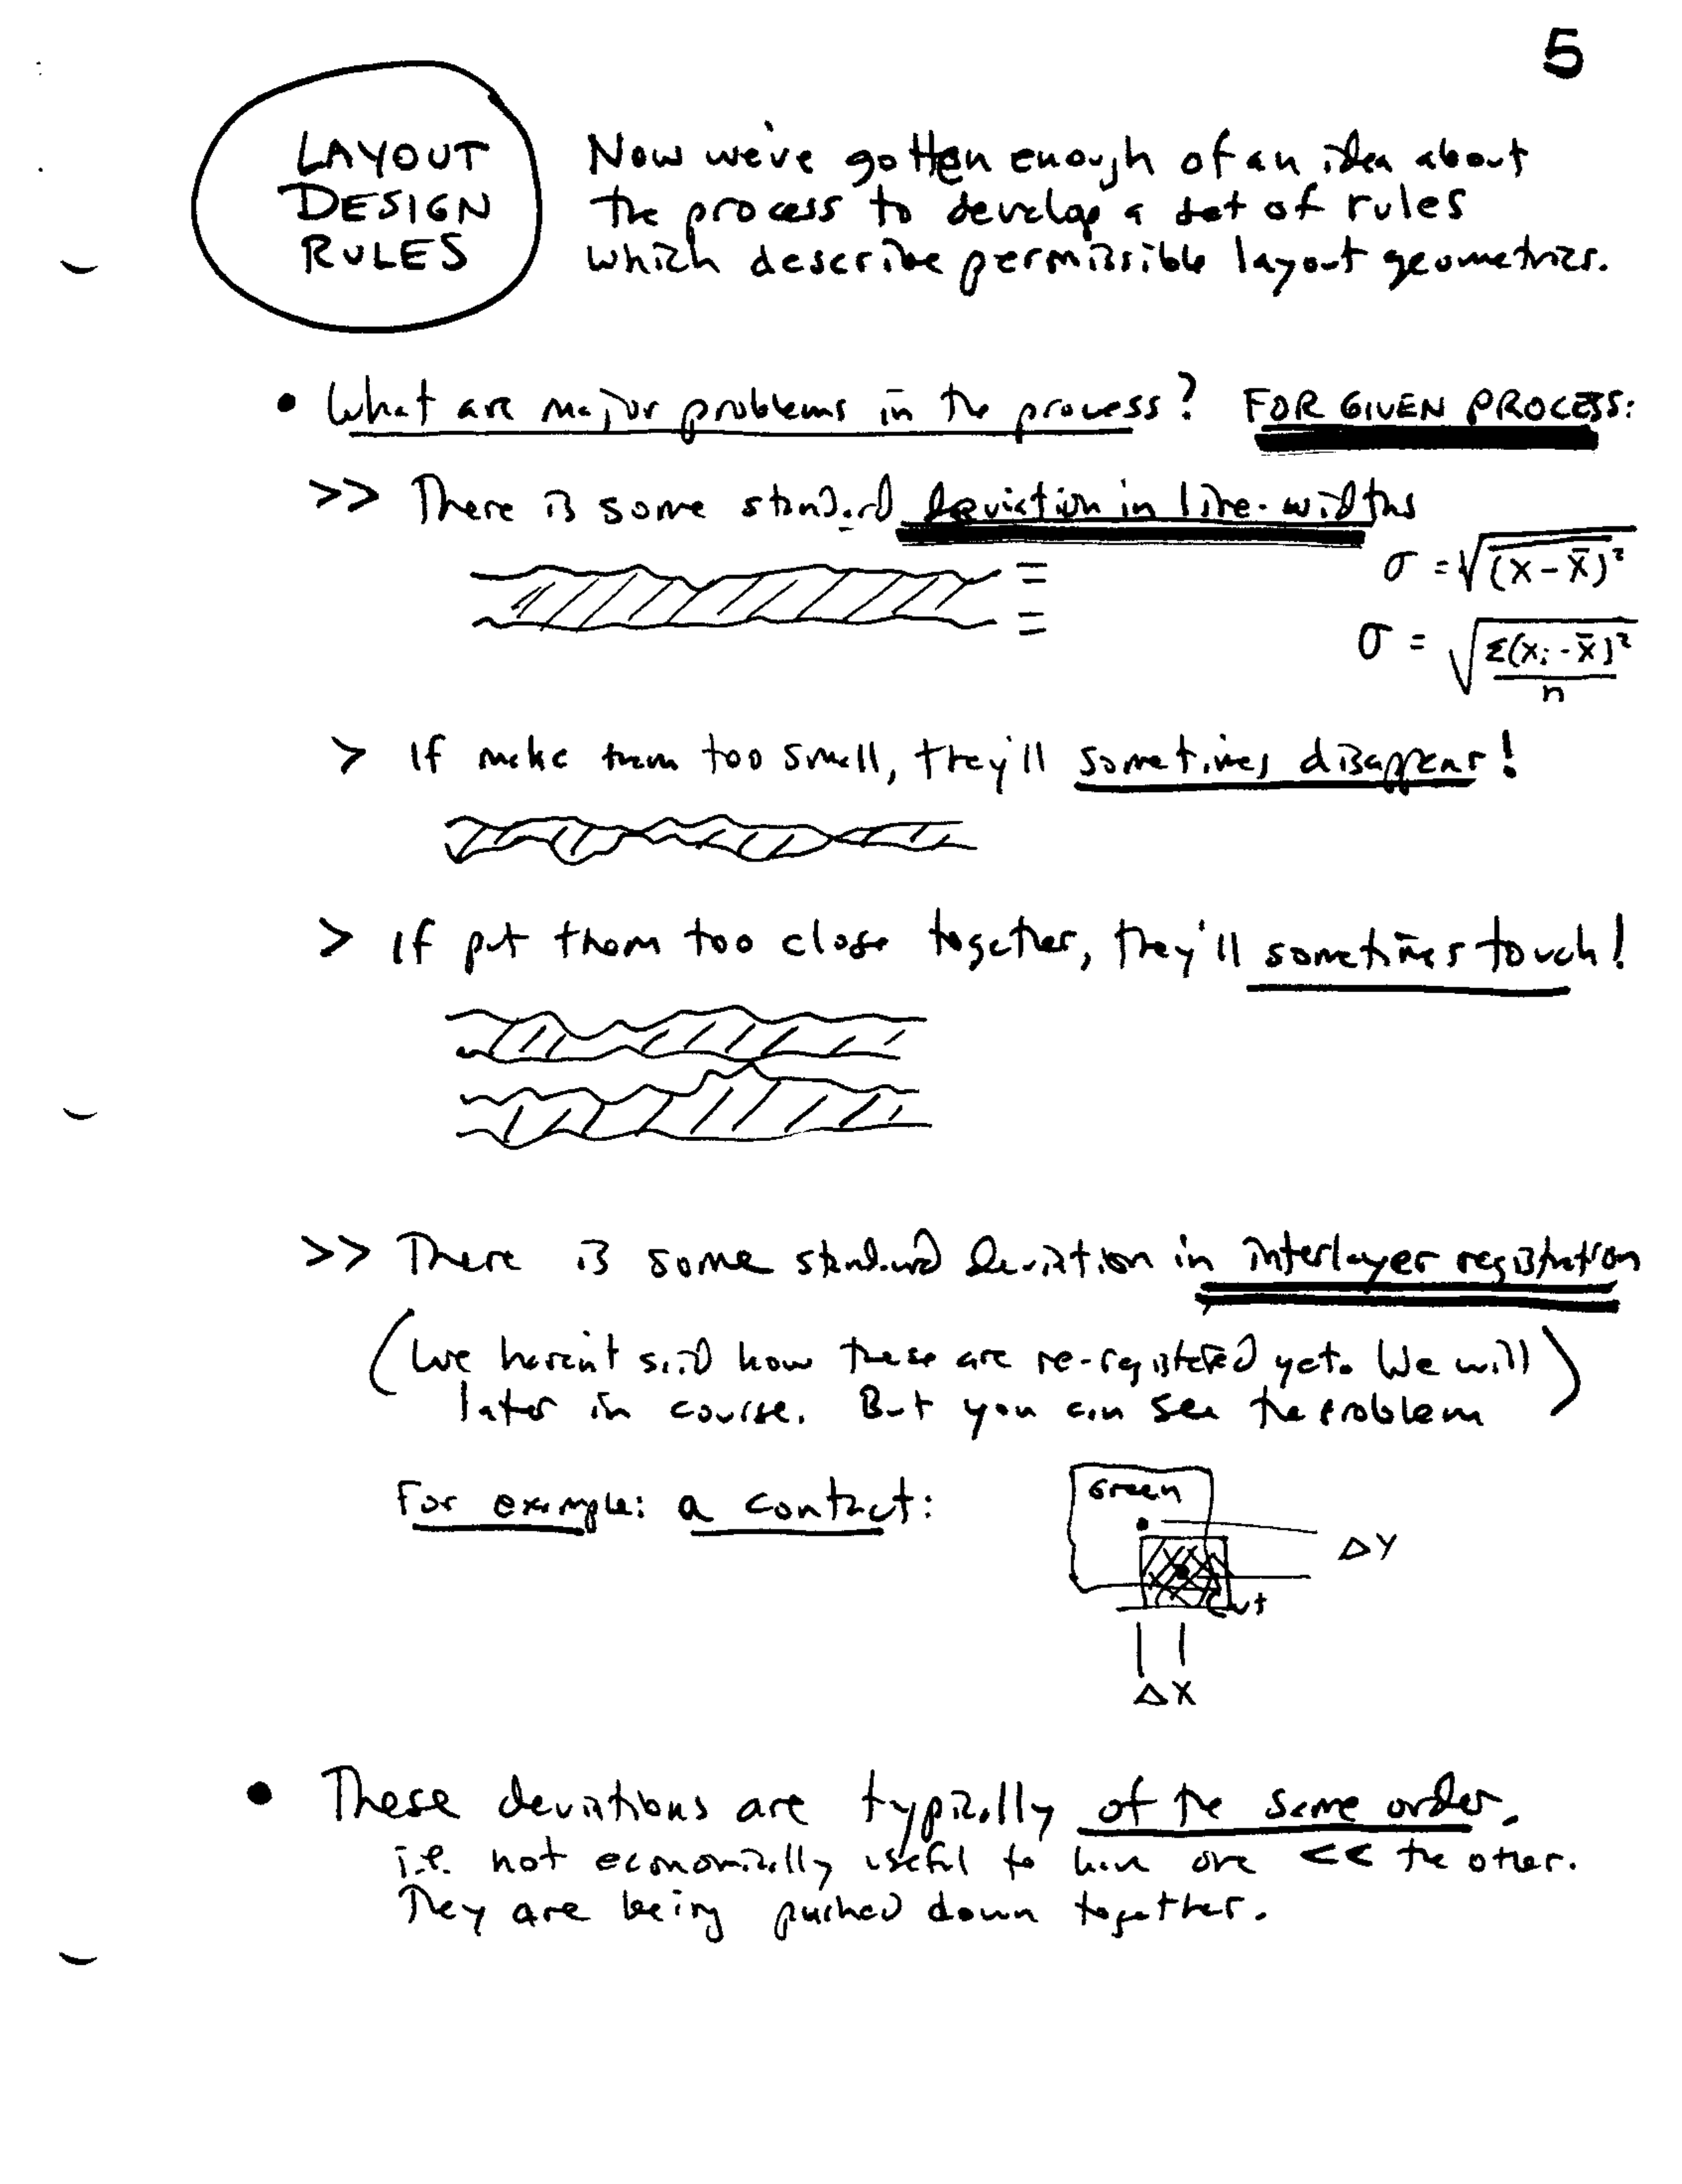 5
LAYOUT
DESIGN
RULES
Now we've gotten enough of an idea about
the process to develop a set of rules
which describe permissible layout geometries.
• What are major problems in the process? FOR GIVEN PROCESS:
>> There is some standard deviation in line-widths
σ = √(x - x̄)²
σ = √Σ(xᵢ - x̄)²/n
> If make them too small, they'll sometimes disappear!
> If put them too close together, they'll sometimes touch!
>> There is some standard deviation in interlayer registration
(We haven't said how these are re-registered yet. We will
later in course. But you can see the problem)
For example: a contact:
Green
ΔY
Cut
ΔX
• These deviations are typically of the same order.
i.e. not economically useful to have one << the other.
They are being pushed down together.